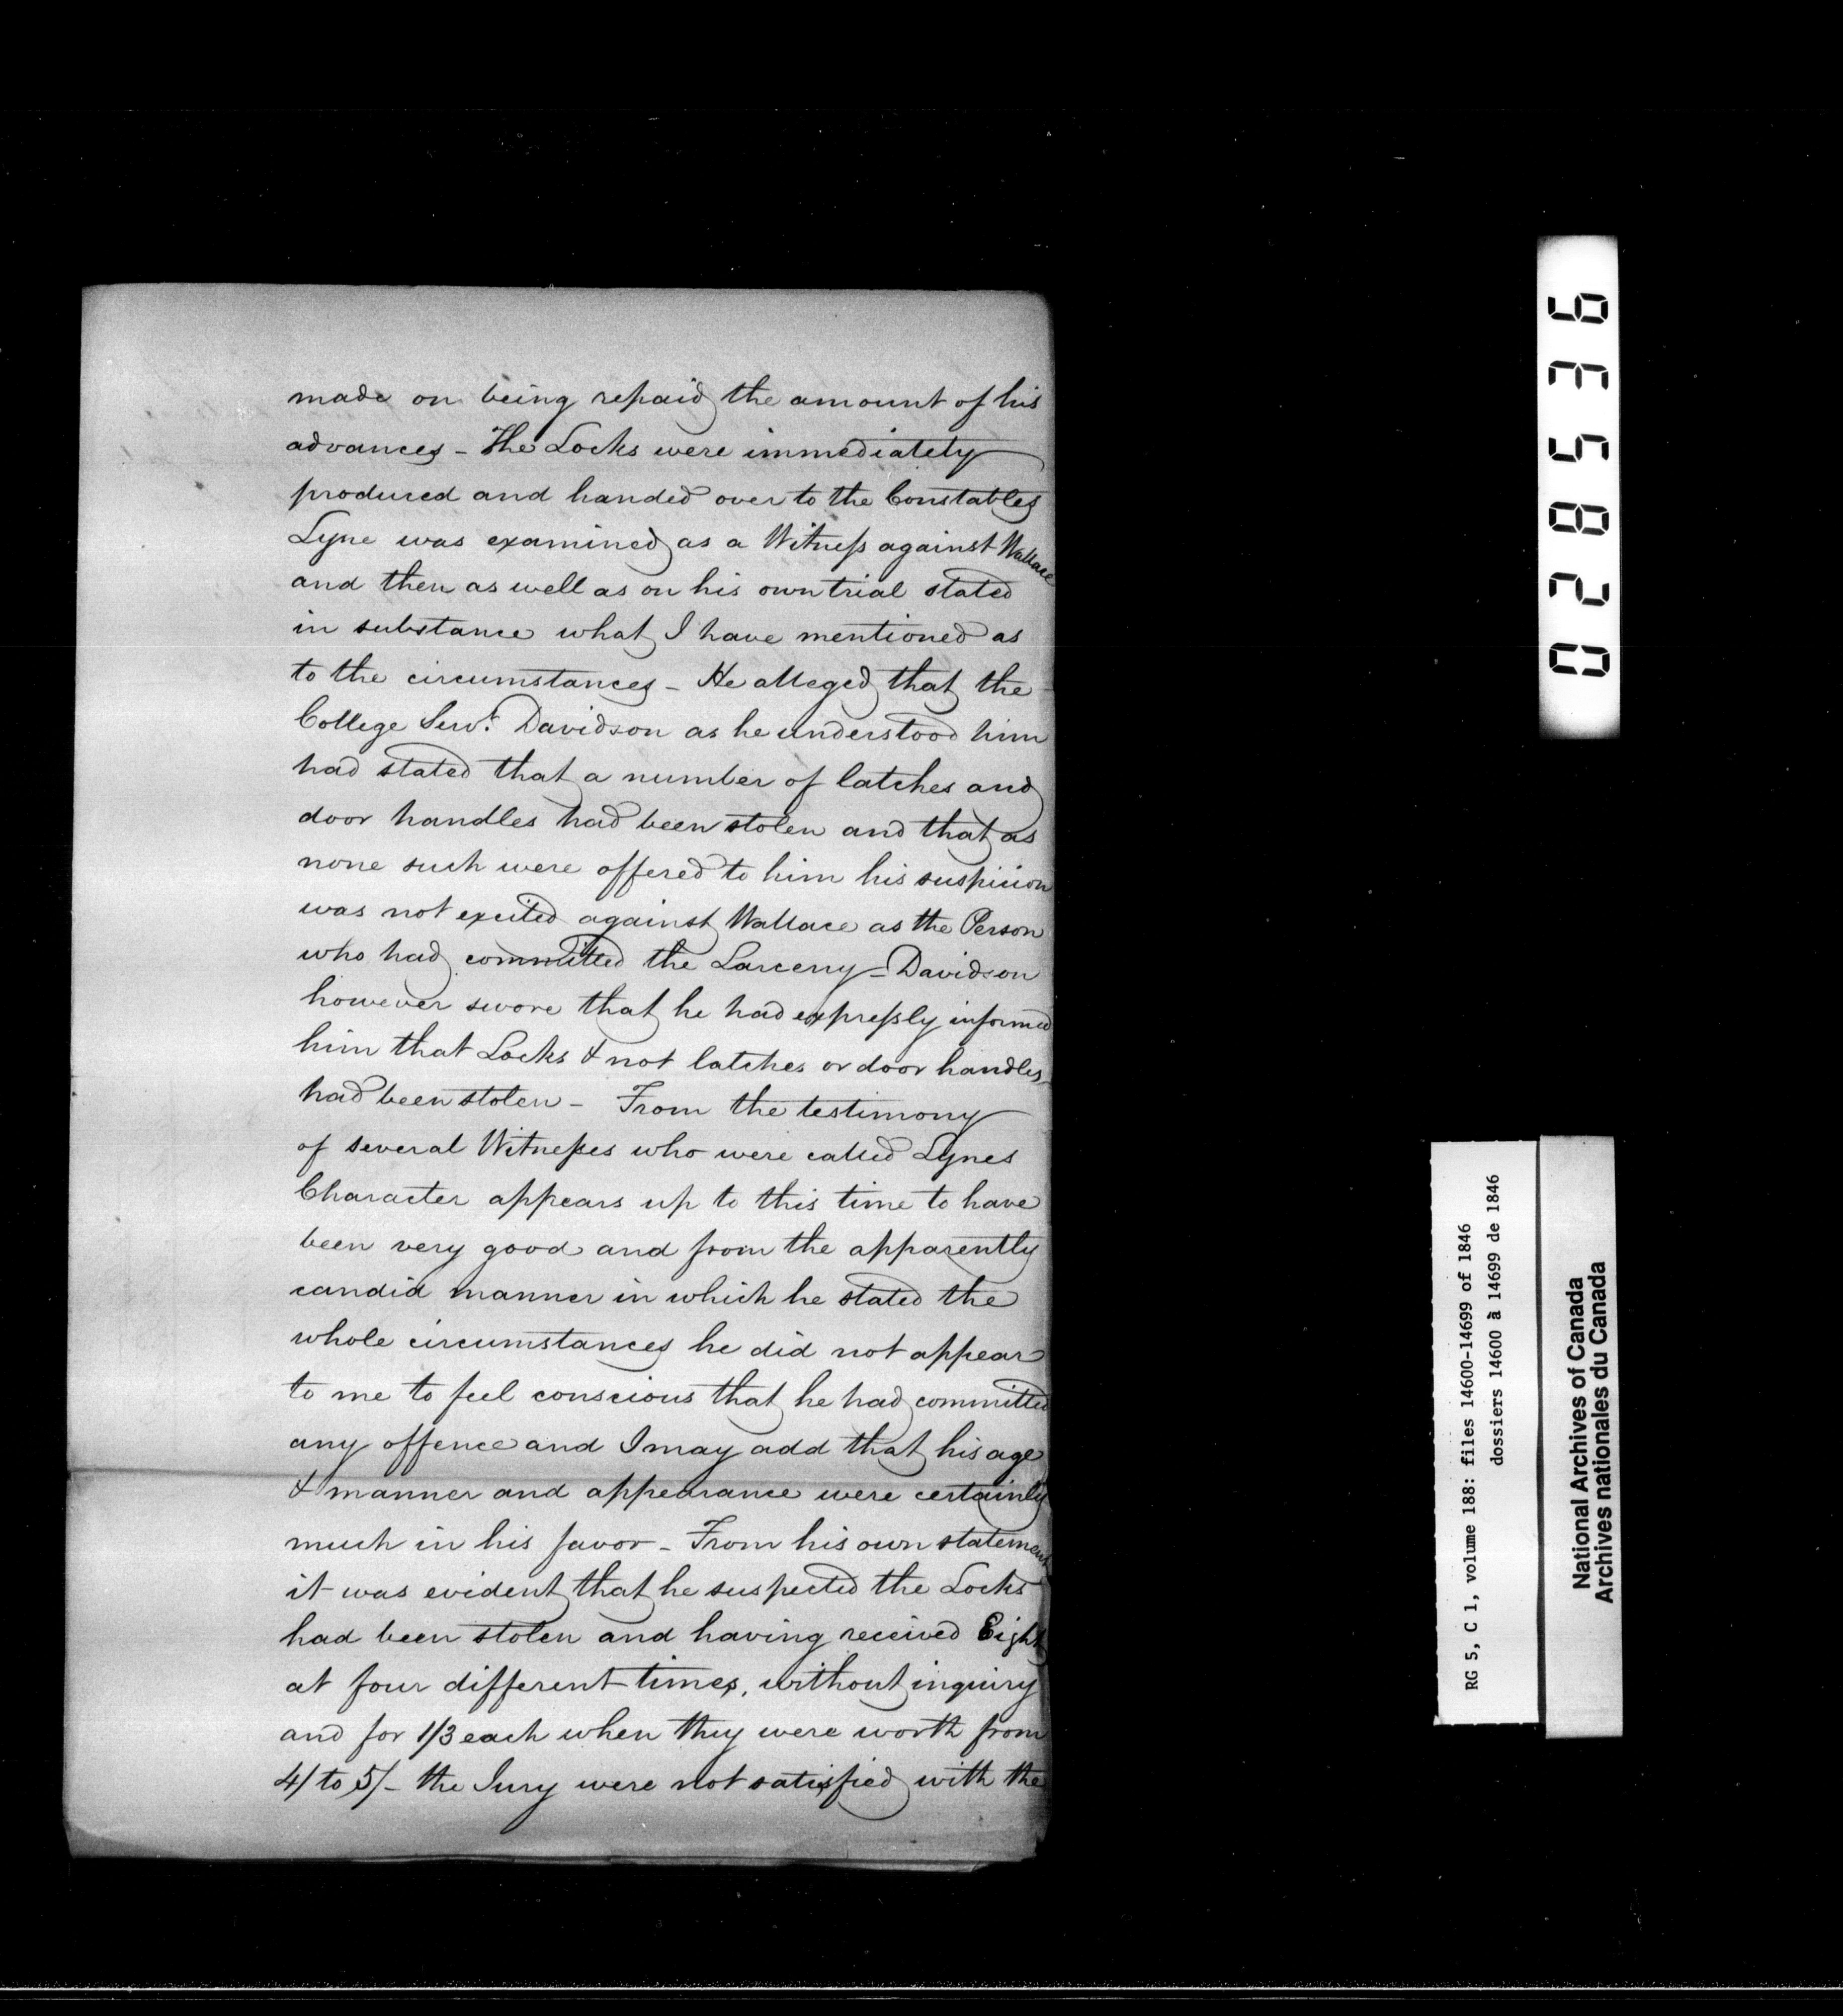 made on being repaid the amount of his
advances - The Locks were immediately
produced and handed over to the Constables
Lyne was examined as a Witness against Wallace
and then as well as on his own trial stated
in substance what I have mentioned as
to the circumstances - He alleged that the
College Servt. Davidson as he understood him
had stated that a number of latches and
door handles had been stolen and that as
none such were offered to him his suspicion
was not excited against Wallace as the Person
who had committed the Larceny - Davidson
however swore that he had expressly informed
him that Locks & not latches or door handles
had been stolen - From the testimony
of several Witnesses who were called Lynes
Character appears up to this time to have
been very good and from the apparently
candid manner in which he stated the
whole circumstances he did not appear
to me to feel conscious that he had committed
any offence and I may add that his age
& manner and appearance were certainly
much in his favor - From his own statement
it was evident that he suspected the Locks
had been stolen and having received Eight
at four different times, without inquiry
and for 1/3 each when they were worth from
4/ to 5/- the Jury were not satisfied with the
028536
RG 5, C 1, volume 188: files 14600-14699 of 1846
dossiers 14600 à 14699 de 1846
National Archives of Canada
Archives nationales du Canada